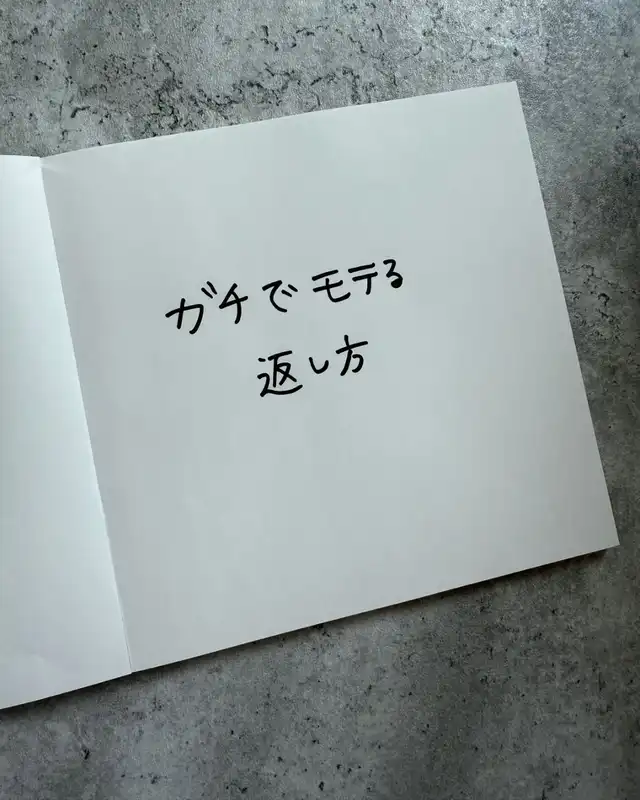 ガチでモテる
返し方